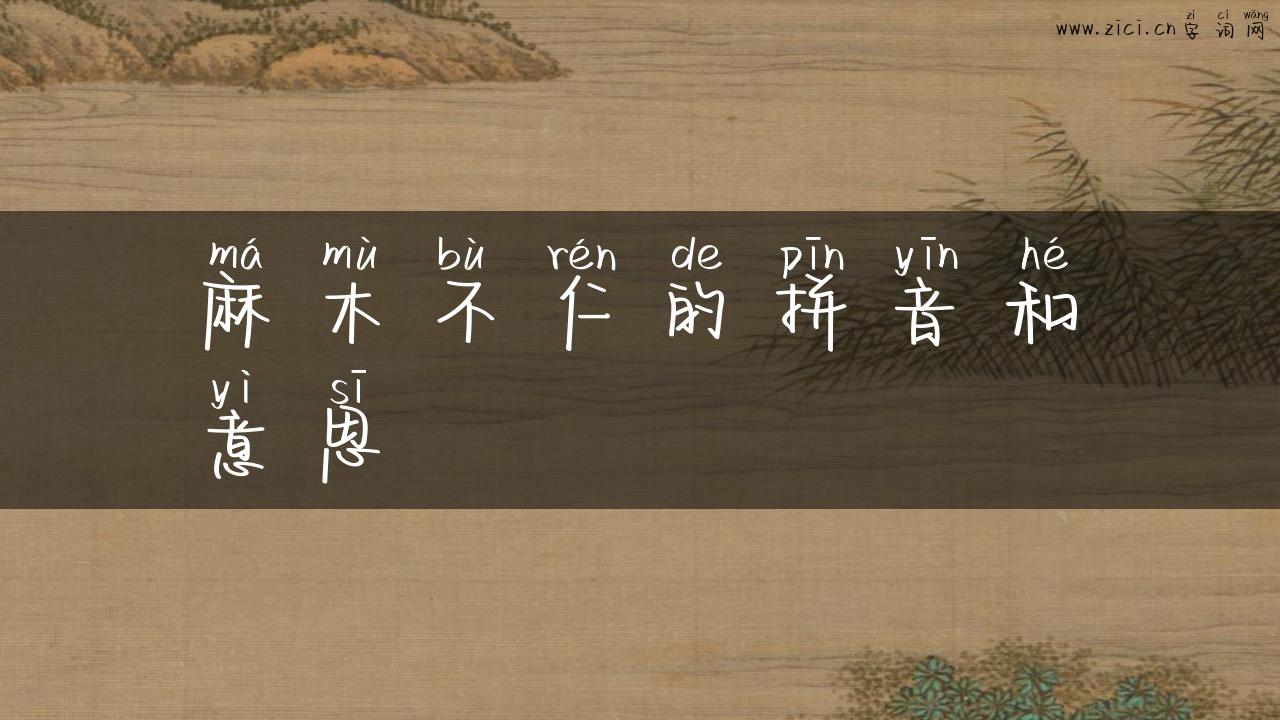 zì cí wǎng
www.zici.cn 字词网
má mù bù rén de pīn yīn hé
麻木不仁的拼音和
yì sī
意思